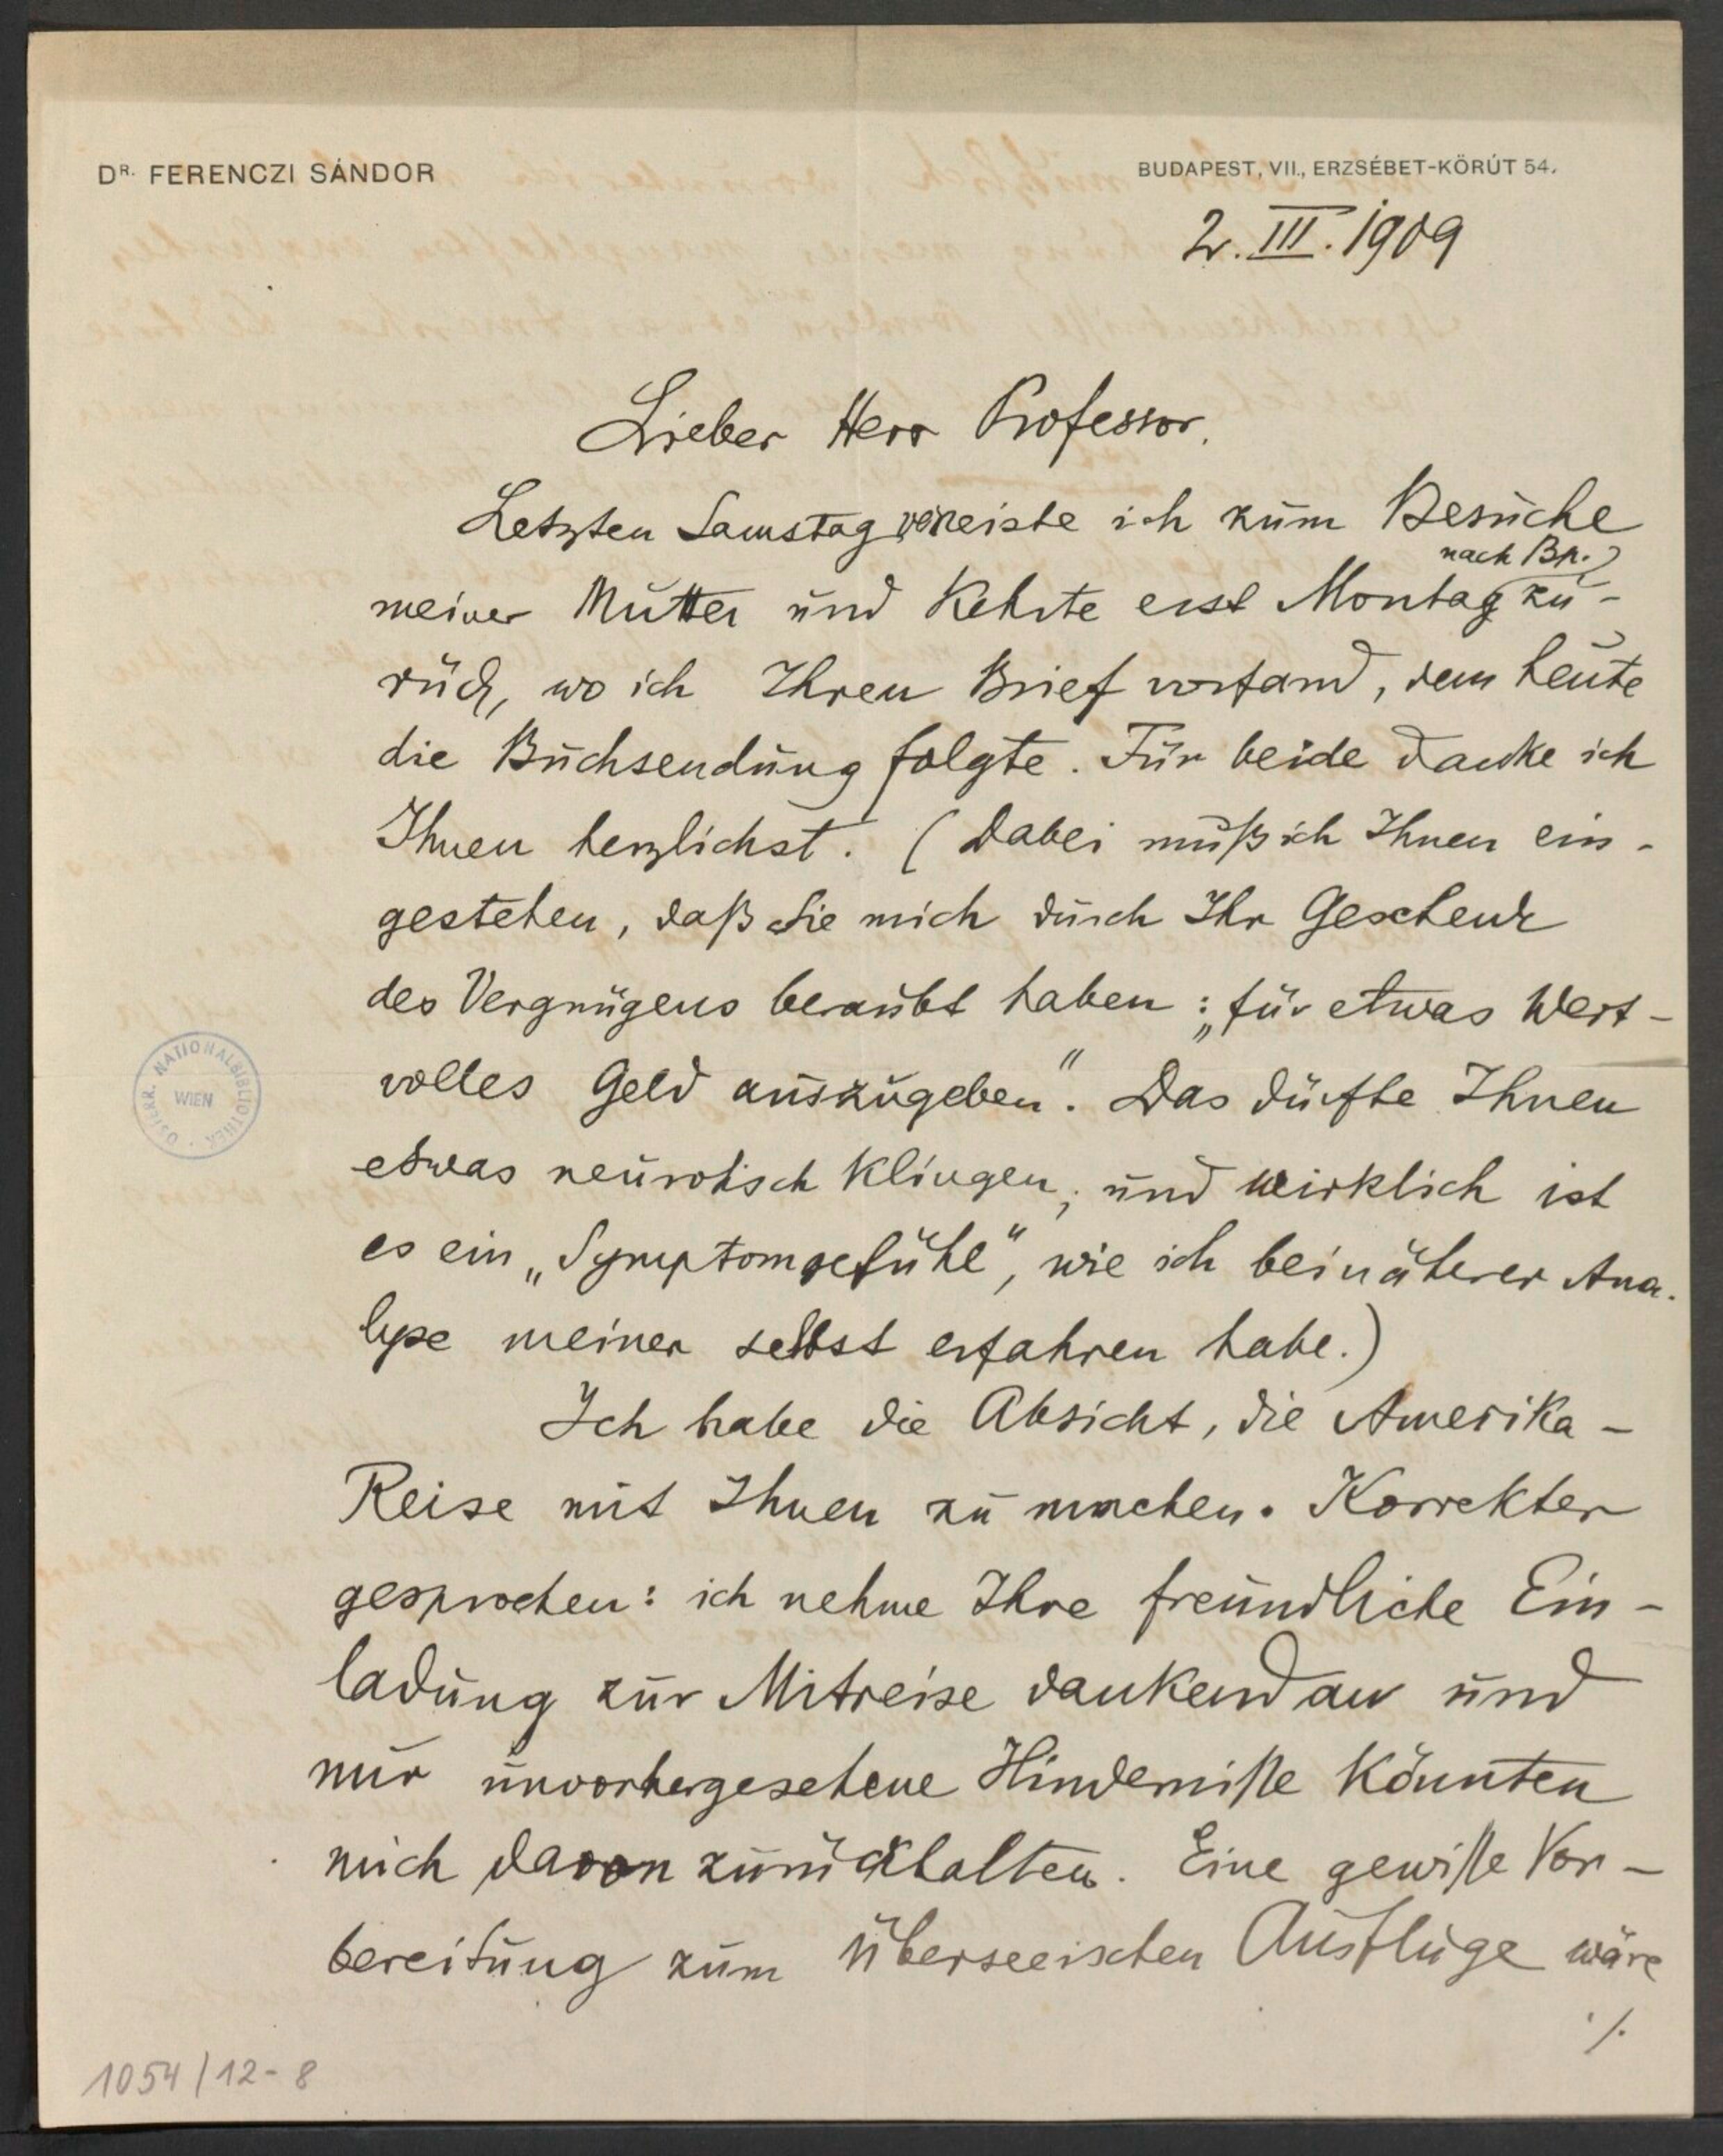 DR. FERENCZI SÁNDOR
BUDAPEST, VII., ERZSÉBET-KÖRÚT 54.
2. III. 1909
Lieber Herr Professor.
Letzten Samstag verreiste ich zum Besuche
meiner Mutter und kehrte erst Montag nach Bp. zu-
rück, wo ich Ihren Brief vorfand, dem heute
die Buchsendung folgte. Für beide danke ich
Ihnen herzlichst. (Dabei muß ich Ihnen ein-
gestehen, daß Sie mich durch Ihr Geschenk
des Vergnügens beraubt haben: „für etwas Wert-
volles Geld auszugeben". Das dürfte Ihnen
etwas neurotisch klingen; und wirklich ist
es ein „Symptomgefühl", wie ich bei näherer Ana-
lyse meiner selbst erfahren habe.)
Ich habe die Absicht, die Amerika-
Reise mit Ihnen zu machen. Korrekter
gesprochen: ich nehme Ihre freundliche Ein-
ladung zur Mitreise dankend an und
nur unvorhergesehene Hinderniße könnten
mich davon zurückhalten. Eine gewiße Vor-
bereitung zum überseeischen Ausfluge wäre
./.
ÖSTERR. NATIONALBIBLIOTHEK
WIEN
1054/12-8